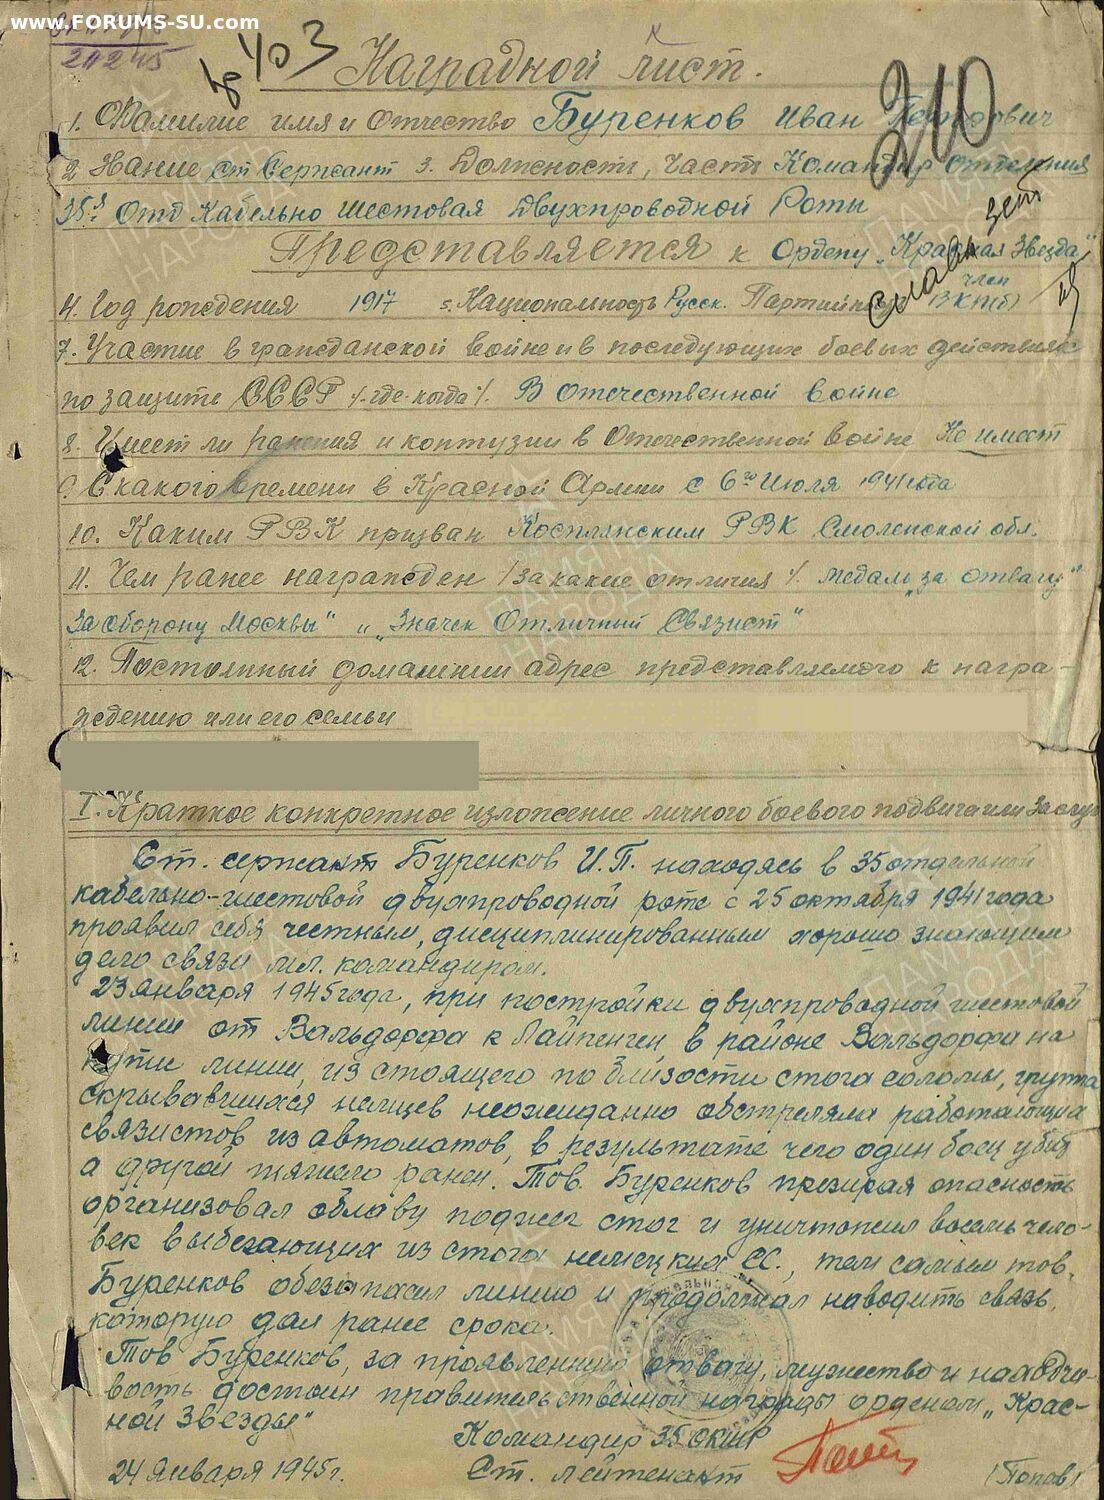 www.FORUMS-SU.com
202 45
№ 403
Наградной лист.
210
1. Фамилие имя и Отчество Буренков Иван
2. Звание ст Сержант 3. Должность, часть Командир отделения
35й Отд Кабельно шестовая Двухпроводной Роты
Представляется к Ордену „Красная Звезда"
Славы 3ст
4. Год рождения 1917 5. Национальность Русск. член ВКПб)
7. Участие в гражданской войне и в последующих боевых действиях
по защите СССР /. где-когда /. В Отечественной войне
8. Имеет ли ранения и контузии в Отечественной войне Не имеет
9. С какого времени в Красной Армии с 6го Июля 1941 года
10. Каким РВК призван Касплянским РВК Смоленской обл.
11. Чем ранее награжден /за какие отличия /. Медаль „за отвагу"
За оборону Москвы" и „Значек Отличный Связист"
12. Постоянный домашний адрес представляемого к награ-
ждению или его семьи
I. Краткое конкретное изложение личного боевого подвига или Заслуг
Ст. сержант Буренков И.П. находясь в 35 отдельной
кабельно-шестовой двухпроводной роте с 25 октября 1941 года
проявил себя честным, дисциплинированным хорошо знающим
дело связи мл. командиром.
23 января 1945 года, при постройки двухпроводной шестовой
линии от Вальдорфа к Лайпенген, в районе Вальдорфа на
пути линии, из стоящего по близости стога соломы, группа
скрывавшихся немцев неожиданно обстреляла работающих
связистов из автоматов, в результате чего один боец убит
а другой тяжело ранен. Тов. Буренков презирая опасность
организовал облаву поджег стог и уничтожил восемь чело-
век выбегающих из стога немецких СС., тем самым тов.
Буренков обезопасил линию и продолжал наводить связь,
которую дал ранее срока.
Тов Буренков, за проявленную отвагу, мужество и находчи-
вость достоин правительственной награды орденом „Крас-
ной Звезды"
Командир 35 ОКШР
24 Января 1945 г. Ст. лейтенант (Попов)